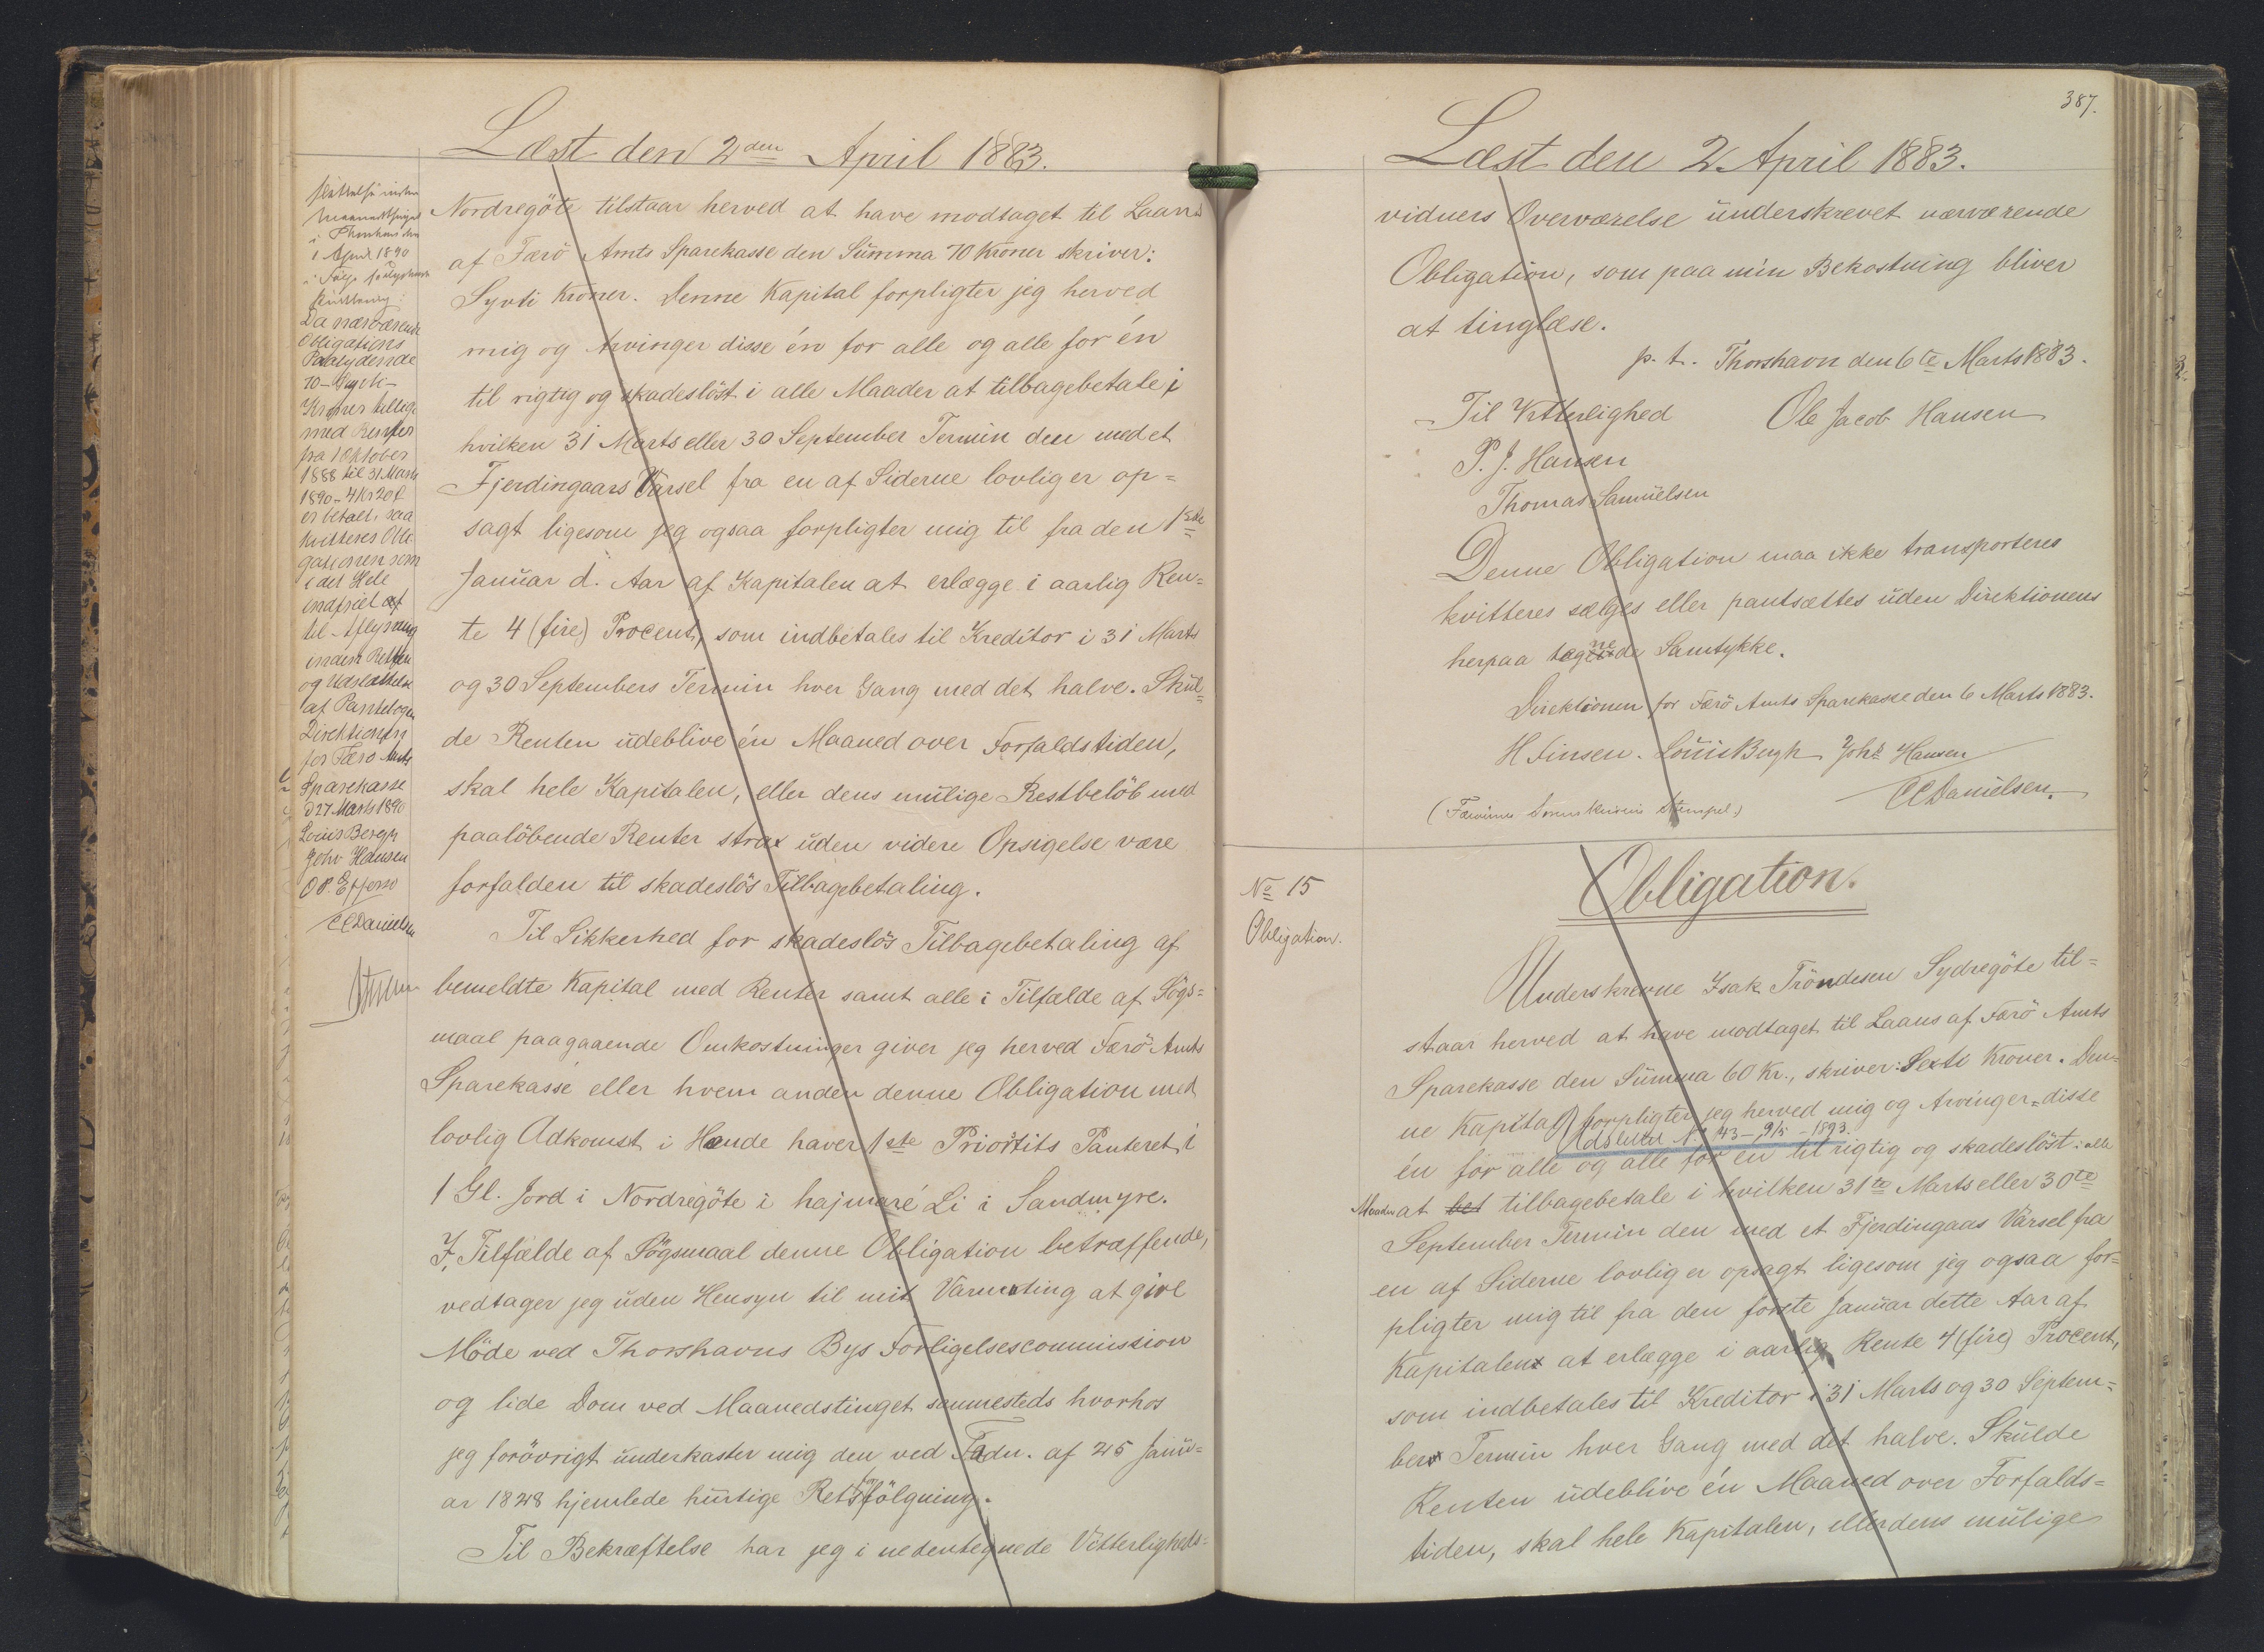 Læst den 2den April 1883.
i April 1890
Da nærværende
Obligations
Paalydende
70 - Sytti -
Kroner tillige
med Renter
fra 1 Oktober
1888 til 31 Marts
1890 - 4 Kr 20 Ø
er betalt, saa
kvitteres Obli-
gationen som
i det Hele
indfriet af
til Aflysning
inden Retten
og Udslettelse
af Pantebogen
Direktionen
for Færø Amts
Sparekasse
d 27 Marts 1890
Louis Bergh
Johs Hansen
O P Effersø
/CCDanielsen
Nordregöte tilstaar herved at have modtaget til Laans
af Færö Amts Sparekasse den Summa 70 Kroner skriver:
Sytti Kroner. Denne Kapital forpligter jeg herved
mig og Arvinger disse én for alle og alle for én
til rigtig og skadeslöst i alle Maader at tilbagebetale i
hvilken 31 Marts eller 30 September Termin den med et
Fjerdingaars Varsel fra en af Siderne lovlig er op=
sagt ligesom jeg ogsaa forpligter mig til fra den 1ste
Januar d. Aar af Kapitalen at erlægge i aarlig Ren=
te 4 (fire) Procent, som indbetales til Kreditor i 31 Marts
og 30 Septembers Termin hver Gang med det halve. Skul=
de Renten udeblive én Maaned over Forfaldstiden,
skal hele Kapitalen, eller dens mulige Restbelöb med
paalöbende Renter strax uden videre Opsigelse være
forfalden til skadeslös Tilbagebetaling.
Til Sikkerhed for skadeslös Tilbagebetaling af
bemeldte Kapital med Renter samt alle i Tilfælde af Sögs=
maal paagaaende Omkostninger giver jeg herved Færö Amts
Sparekasse eller hvem anden denne Obligation med
lovlig Adkomst i Hænde haver 1ste Prioritits Panteret i
1 Gl. Jord i Nordregöte i hajmaré Li i Sandmyre.
I, Tilfælde af Sögsmaal denne Obligation betræffende,
vedtager jeg uden Hensyn til mit Værneting at give
Möde ved Thorshavns Bys Forligelsescommission
og lide Dom ved Maanedstinget sammesteds hvorhos
jeg forövrigt underkaster mig den ved Fadn. af 25 Janu=
ar 1828 hjemlede hurtige Retsforfölgning.
Til Bekræftelse har jeg i nedentegnede Vitterligheds=
387.
Læst den 2. April 1883.
vidners Overværelse underskrevet nærværende
Obligation, som paa min Bekostning bliver
at tinglæse.
p. t. Thorshavn den 6te Marts 1883.
Til Vitterlighed Ole Jacob Hansen
P. J. Hansen
Thomas Samuelsen
Denne Obligation maa ikke transporteres
kvitteres sælges eller pantsættes uden Direktionens
herpaa tegnede Samtykke.
Direktionen for Færö Amts Sparekasse den 6 Marts 1883.
H Finsen. Louis Bergh Johs Hansen
/CCDanielsen.
Stempel.)
No 15
Obligation.
Obligation.
Underskrevne Isak Tröndesen Sydregöte til=
staar herved at have modtaget til Laans af Færö Amts
Sparekasse den Summa 60 Kr., skriver: Sexti Kroner. Den=
ne Kapital forpligter jeg herved mig og Arvinger=disse
Udslettet No 43 - 9/5 - 1893.
én for alle og alle for én til rigtig og skadeslöst i alle
Maader at bet tilbagebetale i hvilken 31te Marts eller 30te
September Termin den med et Fjerdingaas Varsel fra
en af Siderne lovlig er opsagt ligesom jeg ogsaa for=
pligter mig til fra den förste Januar dette Aar af
Kapitalen at erlægge i aarlig Rente 4 (fire) Procent,
som indbetales til Kreditor i 31 Marts og 30 Septem=
ber Termin hver Gang med det halve. Skulde
Renten udeblive én Maaned over Forfalds=
tiden, skal hele Kapitalen, eller dens mulige